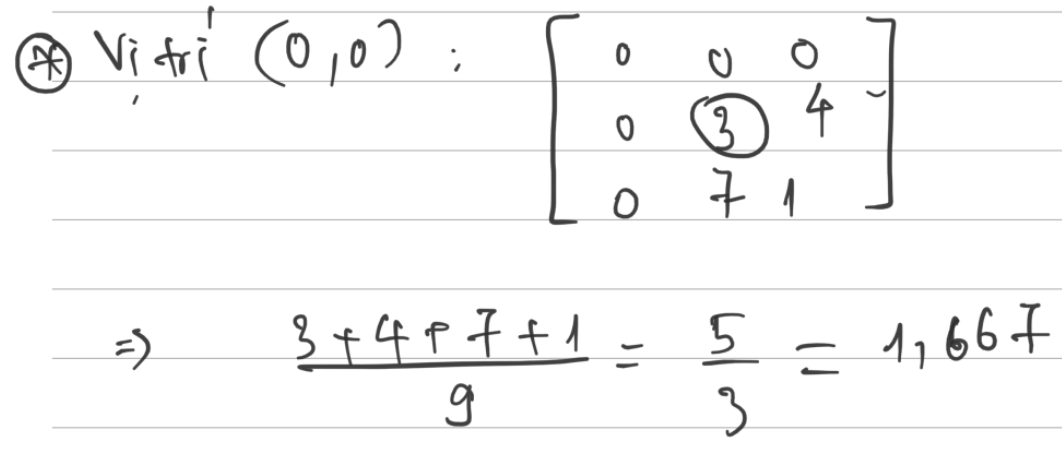 ⊛ Vị trí (0,0) :
0 0 0
0 3 4
0 7 1
=> (3+4+7+1)/9 = 5/3 = 1,667